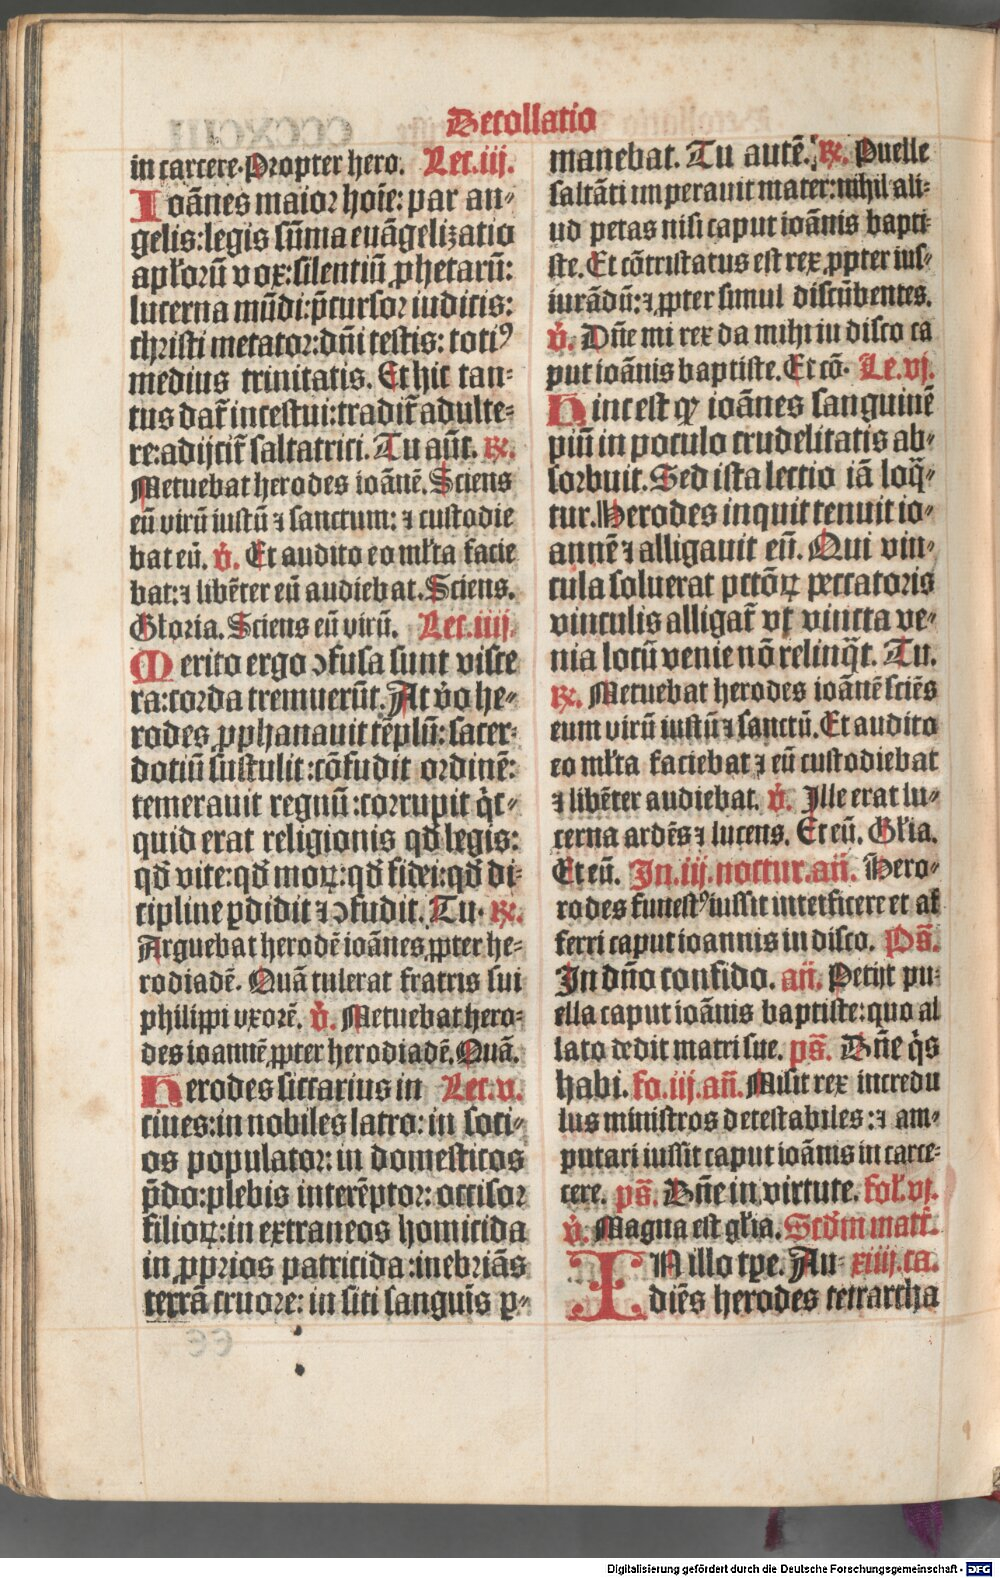 Decollatio
in carcere. Propter hero. Lec.iij.
Ioānes maior hoīe: par an-
gelis: legis sūma euāgelizatio
apl'orū vox: silentiū ꝓphetarū:
lucerna mūdi: p̄cursor iudicis:
christi metator: dn̄i testis: totiꝰ
medius trinitatis. Et hic tan-
tus dat̄ incestui: tradit̄ adulte-
re: adijcit̄ saltatrici. Tu aūt. ℟.
Metuebat herodes ioānē. Sciens
eū virū iustū ⁊ sanctum: ⁊ custodie
bat eū. ℣. Et audito eo ml'ta facie
bat: ⁊ libēter eū audiebat. Sciens.
Gloria. Sciens eū virū. Lec.iiij.
Merito ergo ꝯfusa sunt visce
ra: corda tremuerūt. At v̊o he-
rodes ꝓphanauit tēplū: sacer-
dotiū sustulit: cōfudit ordinē:
temerauit regnū: corrupit q̇c-
quid erat religionis qđ legis:
qđ vite: qđ moꝝ: qđ fidei: qđ di-
cipline ꝑdidit ⁊ ꝯfudit. Tu. ℟.
Arguebat herodē ioānes ꝓpter he-
rodiadē. Quā tulerat fratris sui
philippi vxorē. ℣. Metuebat hero-
des ioannē ꝓpter herodiadē. Quā.
Herodes siccarius in Lec.v.
ciues: in nobiles latro: in soci-
os populator: in domesticos
p̄do: plebis interēptor: occisor
filioꝝ: in extraneos homicida
in ꝓprios patricida: inebriās
terrā cruore: in siti sanguīs ꝑ-
manebat. Tu autē. ℟. Puelle
saltāti imperauit mater: nihil ali-
ud petas nisi caput ioānis bapti-
ste. Et cōtristatus est rex ꝓpter ius-
iurādū: ⁊ ꝓpter simul discūbentes.
℣. Dn̄e mi rex da mihi in disco ca
put ioānis baptiste. Et cō. Le.vj.
Hinc est ꝙ ioānes sanguinē
piū in poculo crudelitatis ab-
sorbuit. Sed ista lectio iā loq̄-
tur. Herodes inquit tenuit io-
annē ⁊ alligauit eū. Qui vin-
cula soluerat pctōꝝ peccatoris
vinculis alligat̄ vt vincta ve-
nia locū venie nō relinq̄t. Tu.
℟. Metuebat herodes ioānē sciēs
eum virū iustū ⁊ sanctū. Et audito
eo ml'ta faciebat ⁊ eū custodiebat
⁊ libēter audiebat. ℣. Ille erat lu-
cerna ardēs ⁊ lucens. Et eū. Gl'ia.
Et eū. In.iij.noctur.an̄. Hero-
rodes funestꝰ iussit interficere et af
ferri caput ioannis in disco. Ps̄.
In dn̄o confido. an̄. Petijt pu-
ella caput ioānis baptiste: quo al
lato dedit matri sue. ps̄. Dn̄e q̇s
habi. fo.iij.an̄. Misit rex incredu
lus ministros detestabiles: ⁊ am-
putari iussit caput ioānis in carce-
cere. ps̄. Dn̄e in virtute. fol'.vj.
℣. Magna est gl'ia. Scđm matt̄.
IN illo tp̄e. Au- xiiij.ca.
diēs herodes tetrarcha
33
Digitalisierung gefördert durch die Deutsche Forschungsgemeinschaft - DFG